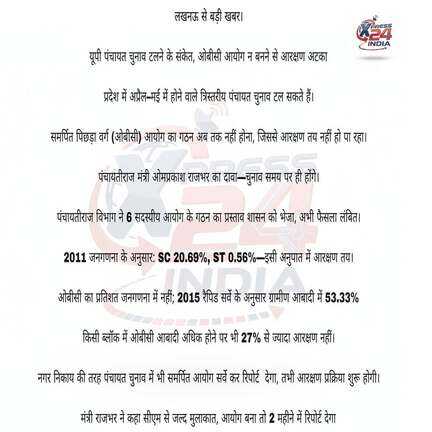 लखनऊ से बड़ी खबर।
XPRESS
24
INDIA
यूपी पंचायत चुनाव टलने के संकेत, ओबीसी आयोग न बनने से आरक्षण अटका
प्रदेश में अप्रैल–मई में होने वाले त्रिस्तरीय पंचायत चुनाव टल सकते हैं।
समर्पित पिछड़ा वर्ग (ओबीसी) आयोग का गठन अब तक नहीं होना, जिससे आरक्षण तय नहीं हो पा रहा।
पंचायतीराज मंत्री ओमप्रकाश राजभर का दावा—चुनाव समय पर ही होंगे।
पंचायतीराज विभाग ने 6 सदस्यीय आयोग के गठन का प्रस्ताव शासन को भेजा, अभी फैसला लंबित।
2011 जनगणना के अनुसार: SC 20.69%, ST 0.56%—इसी अनुपात में आरक्षण तय।
ओबीसी का प्रतिशत जनगणना में नहीं; 2015 रैपिड सर्वे के अनुसार ग्रामीण आबादी में 53.33%
किसी ब्लॉक में ओबीसी आबादी अधिक होने पर भी 27% से ज्यादा आरक्षण नहीं।
नगर निकाय की तरह पंचायत चुनाव में भी समर्पित आयोग सर्वे कर रिपोर्ट देगा, तभी आरक्षण प्रक्रिया शुरू होगी।
मंत्री राजभर ने कहा सीएम से जल्द मुलाकात, आयोग बना तो 2 महीने में रिपोर्ट देगा
XPRESS
24
INDIA